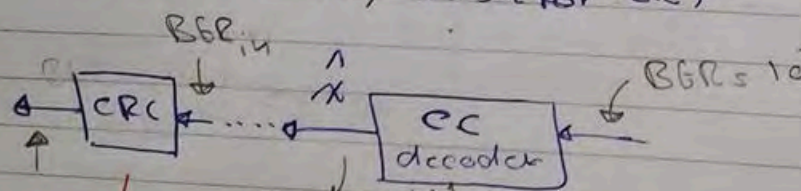 BER in
x̂
BER = 10
CRC
CC
decoder